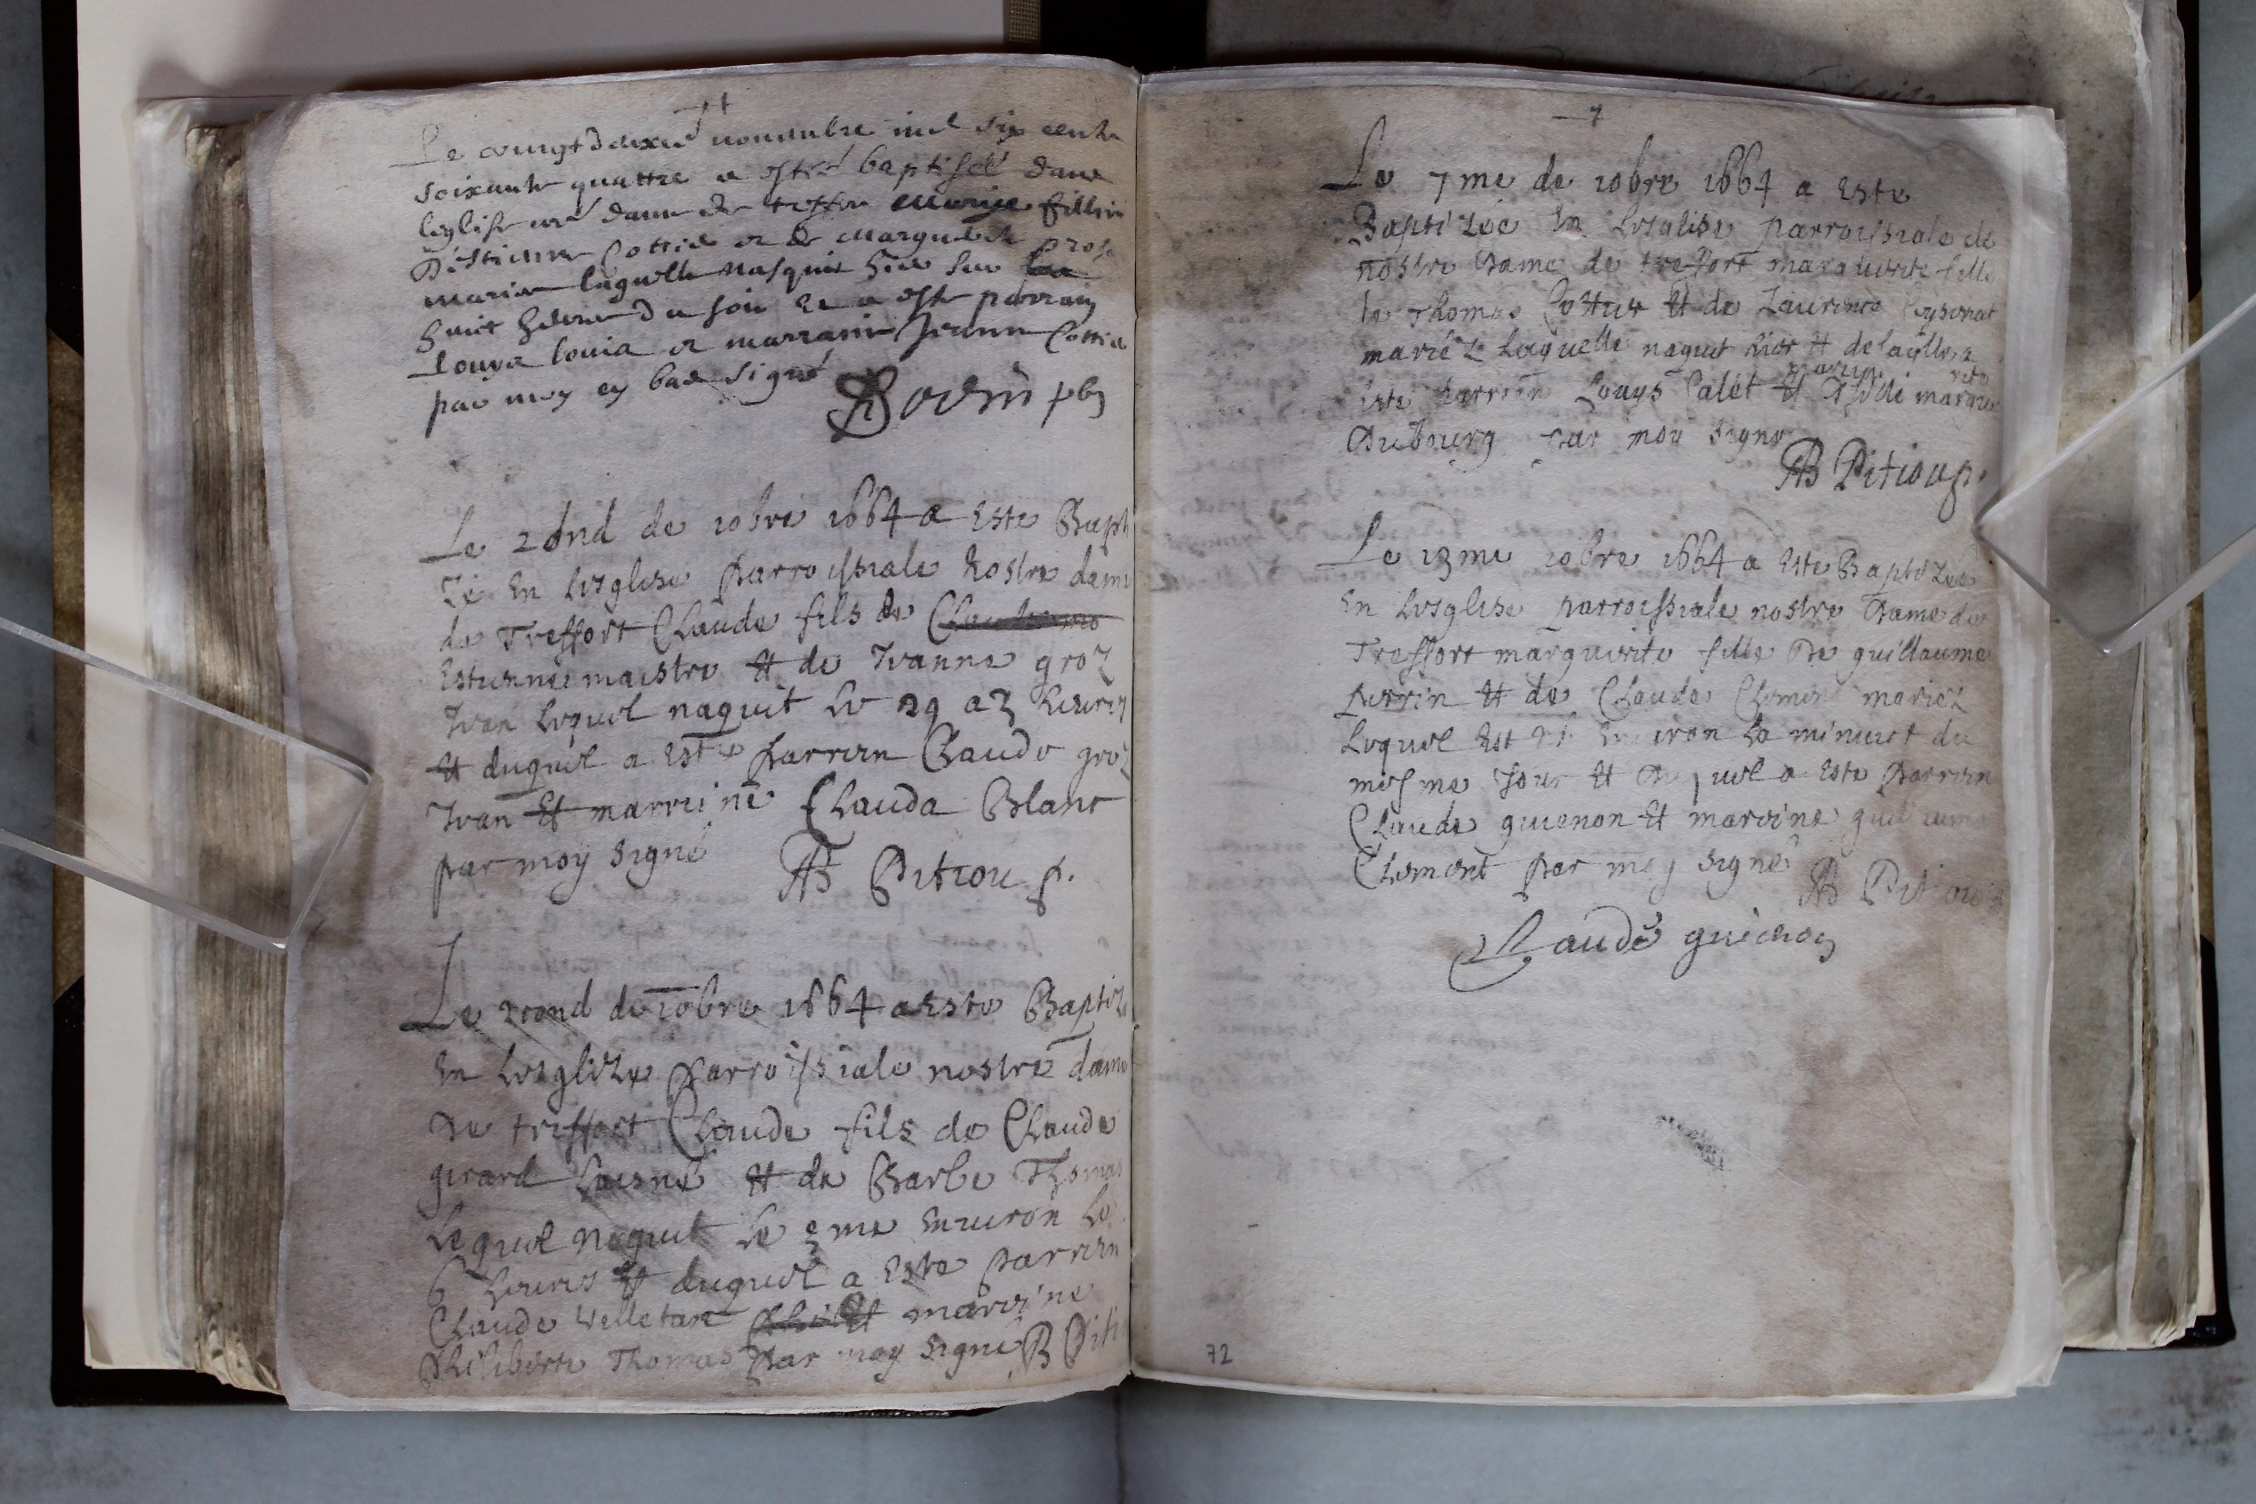 Le vingtdeuxie novembre mil six cents
soixante quattre a esté baptisée dans
leglise nre dame de Marie fillie
D'estienne Cottier et de Marguerite
mariez laquelle nasquit hier sur
huict heure du soir et a esté parrain
Louys et marraine Jeanne Cottier
par moy en bas signé
Bodin pb
Le 2ond de 10bre 1664 a este Bapti
zé En lesglise Parroissiale Nostre dame
de Treffort Claude fils de
Estienne maistre Et de Ivanne groz
Ivan lequel naquit le 29 a 3 heures
Et duquel a este Parrin Claude groz
Ivan Et marreine Clauda Blanc
par moy signé
AB Pitiou p.
Le 2cond de 10bre 1664 a este Baptizé
En lesglize Parroissiale nostre dame
De treffort Claude fils de Claude
girard laisné Et de Barbe Thomas
Lequel naquit le me Enuiron le
6 heures Et duquel a Este Parrin
Claude Velletan marreine
Philiberte Thomas Par moy signé B Piti
7
Le 7me de 10bre 1664 a Este
Baptizée En lesglise parroissiale de
nostre Dame de treffort marguerite fille
de Thomas Cottier Et de Laurence
mariez Laquelle naquit hier Et delaquelle a
este parrin Louys Calet Et marguerite
Dubourg par moy signé
AB Pitiou p.
Le 13me 10bre 1664 a Este Baptizée
En lesglise parroissiale nostre Dame de
Treffort marguerite fille De guillaume
perrin Et de Claude Clement mariez
Lequel Est Enuiron la minuict du
mesme Jour Et Duquel a Este Parrin
Claude guienon Et marreine guillauma
Clement par moy signé
AB Pitiou
Claude guienon
72